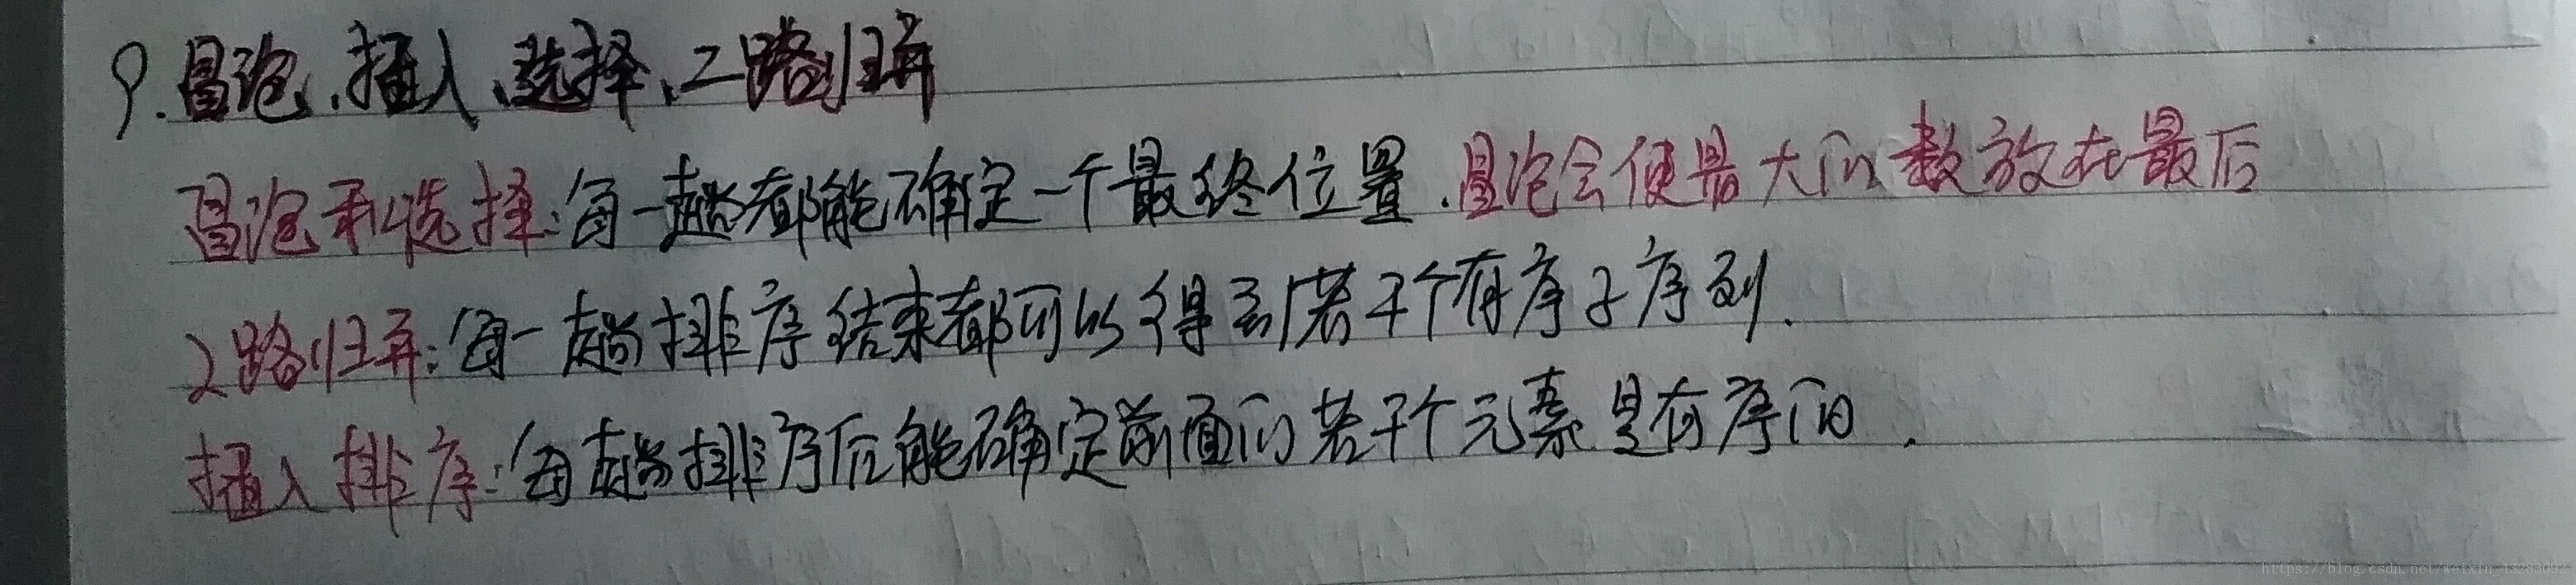 9.冒泡、插入、选择、二路归并
冒泡和选择:每一趟都能确定一个最终位置.冒泡会使最大的数放在最后
2路归并:每一趟排序结束都可以得到若干个有序子序列.
插入排序:每趟排序后能确定前面的若干个元素是有序的.